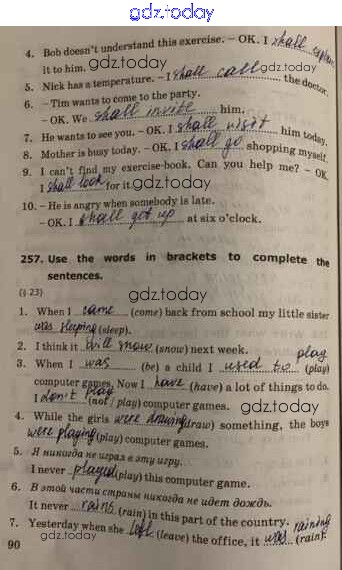 gdz.today
4. Bob doesn't understand this exercise. – OK. I shall explain
it to him. gdz.today
5. Nick has a temperature. – I shall call the doctor.
6. – Tim wants to come to the party.
– OK. We shall invite him.
7. He wants to see you. – OK. I shall visit him today.
8. Mother is busy today. – OK. I shall go shopping myself.
9. I can't find my exercise-book. Can you help me? – OK.
I shall look for it. gdz.today
10. – He is angry when somebody is late.
– OK. I shall get up at six o'clock.
gdz.today
257. Use the words in brackets to complete the
sentences.
(§ 23)
gdz.today
1. When I came (come) back from school my little sister
was sleeping (sleep).
2. I think it will snow (snow) next week.
3. When I was (be) a child I used to play (play)
computer games. Now I have (have) a lot of things to do.
I don't play (not / play) computer games.
gdz.today
4. While the girls were drawing (draw) something, the boys
were playing (play) computer games.
5. Я никогда не играл в эту игру.
I never played (play) this computer game.
6. В этой части страны никогда не идет дождь.
It never rains (rain) in this part of the country.
7. Yesterday when she left (leave) the office, it was raining (rain).
gdz.today
90
gdz.today